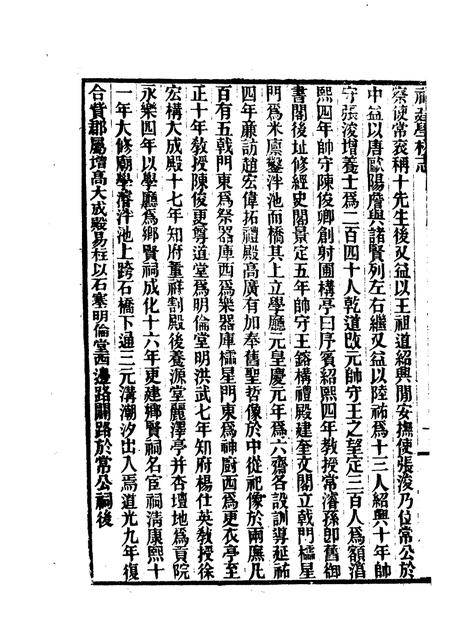 福建學校志
察使常袞稱十先生後又益以王祖道紹興閒安撫使張浚乃位常公於
中益以唐歐陽詹與諸賢列左右繼又益以陸祐爲十三人紹興十年帥
守張浚增養士爲二百四十人乾道改元帥守王之望定三百人爲額淳
熙四年帥守陳俊卿創射圃構亭曰序賓紹熙四年教授常濬孫卽舊御
書閣後址修經史閣景定五年帥守王鎔構禮殿建奎文閣立戟門櫺星
門爲米廩鑿泮池而橋其上立學廳元皇慶元年爲六齋各設訓導延祐
四年廉訪趙宏偉拓禮殿高廣有加奉舊聖哲像於中從祀像於兩廡凡
百有五戟門東爲祭器庫西爲樂器庫櫺星門東爲神廚西爲更衣亭至
正十年教授陳俊更尊道堂爲明倫堂明洪武七年知府楊仕英教授徐
宏構大成殿十七年知府董祥割殿後養源堂麗澤亭并杏壇地爲貢院
永樂四年以學廳爲鄉賢祠成化十六年更建鄉賢祠名宦祠清康熙十
一年大修廟學濬泮池上跨石橋下通三元溝潮汐出入焉道光九年復
合貲郡屬增高大成殿易柱以石塞明倫堂西邊路闢路於常公祠後